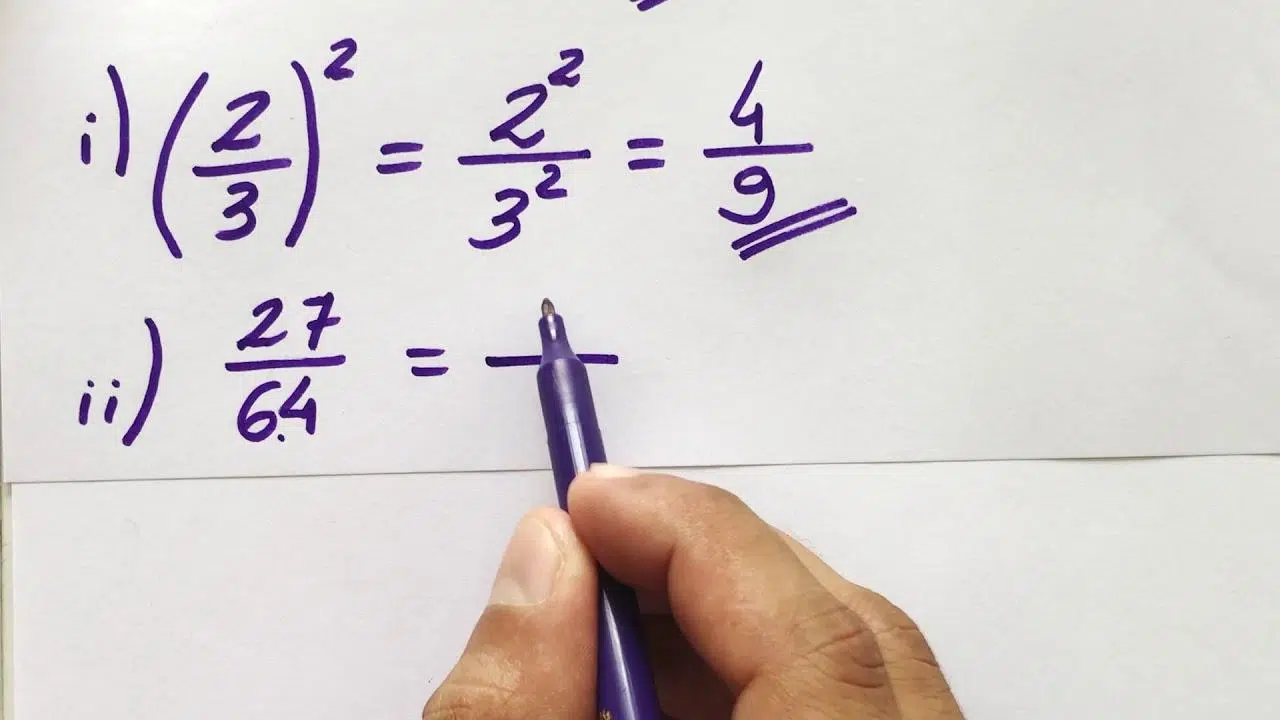 i) (2/3)² = 2²/3² = 4/9
ii) 27/64 =